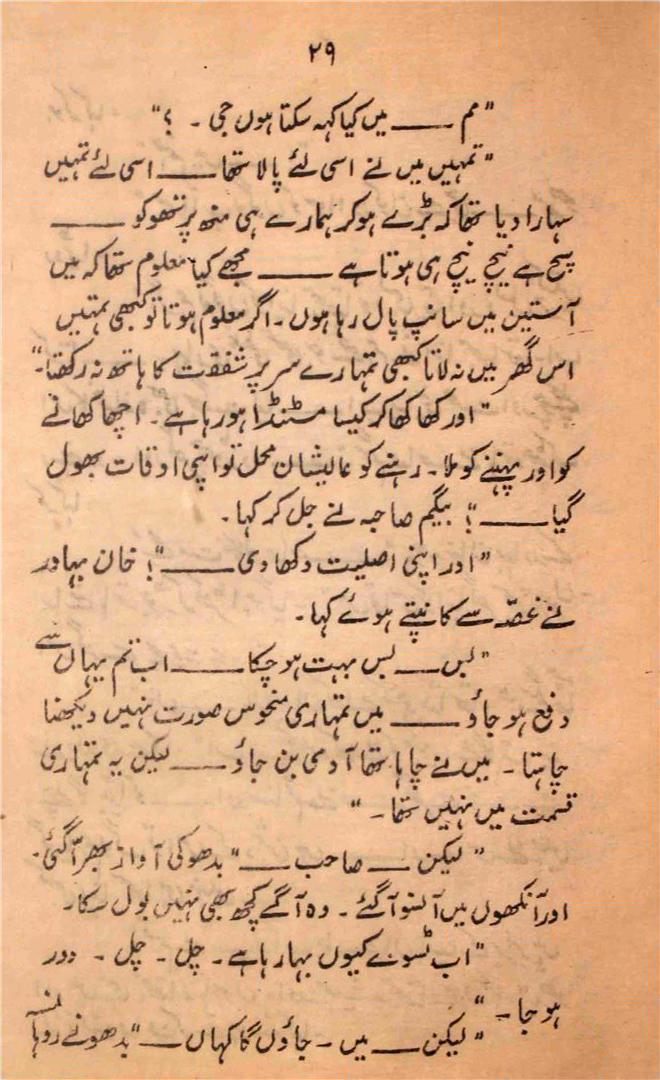 ۲۹
"مم ــــ میں کیا کہہ سکتا ہوں جی ۔ ؟"
"تمہیں میں نے اسی لئے پالا تھا ــــ اسی لئے تمہیں
سہارا دیا تھا کہ بڑے ہو کر ہمارے ہی منھ پر تھوکو ــــ
سچ ہے نیچ نیچ ہی ہوتا ہے ــــ مجھے کیا معلوم تھا کہ میں
آستین میں سانپ پال رہا ہوں ۔ اگر معلوم ہوتا تو کبھی تمہیں
اس گھر میں نہ لاتا کبھی تمہارے سر پر شفقت کا ہاتھ نہ رکھتا۔"
"اور کھا کھا کر کیسا مسٹنڈا ہو رہا ہے ۔ اچھا کھانے
کو اور پہننے کو ملا ۔ رہنے کو عالیشان محل تو اپنی اوقات بھول
گیا ــــ"! بیگم صاحبہ نے جل کر کہا ۔
"اور اپنی اصلیت دکھا دی ــــ"! خان بہادر
نے غصّہ سے کانپتے ہوئے کہا ۔
"بس ــــ بس بہت ہو چکا ــــ اب تم یہاں سے
دفع ہو جاؤ ــــ میں تمہاری منحوس صورت نہیں دیکھنا
چاہتا ۔ میں نے چاہا تھا آدمی بن جاؤ ــــ لیکن یہ تمہاری
قسمت میں نہیں تھا ۔ "
"لیکن ــــ صاحب ــــ" بدھو کی آواز بھرّا گئی ۔
اور آنکھوں میں آنسو آ گئے ۔ وہ آگے کچھ بھی نہیں بول سکا۔
"اب ٹسوے کیوں بہا رہا ہے ۔ چل ۔ چل ۔ دور
ہو جا ۔ "
"لیکن ــــ میں ۔ جاؤں گا کہاں ــــ" بدھو نے روہانسا